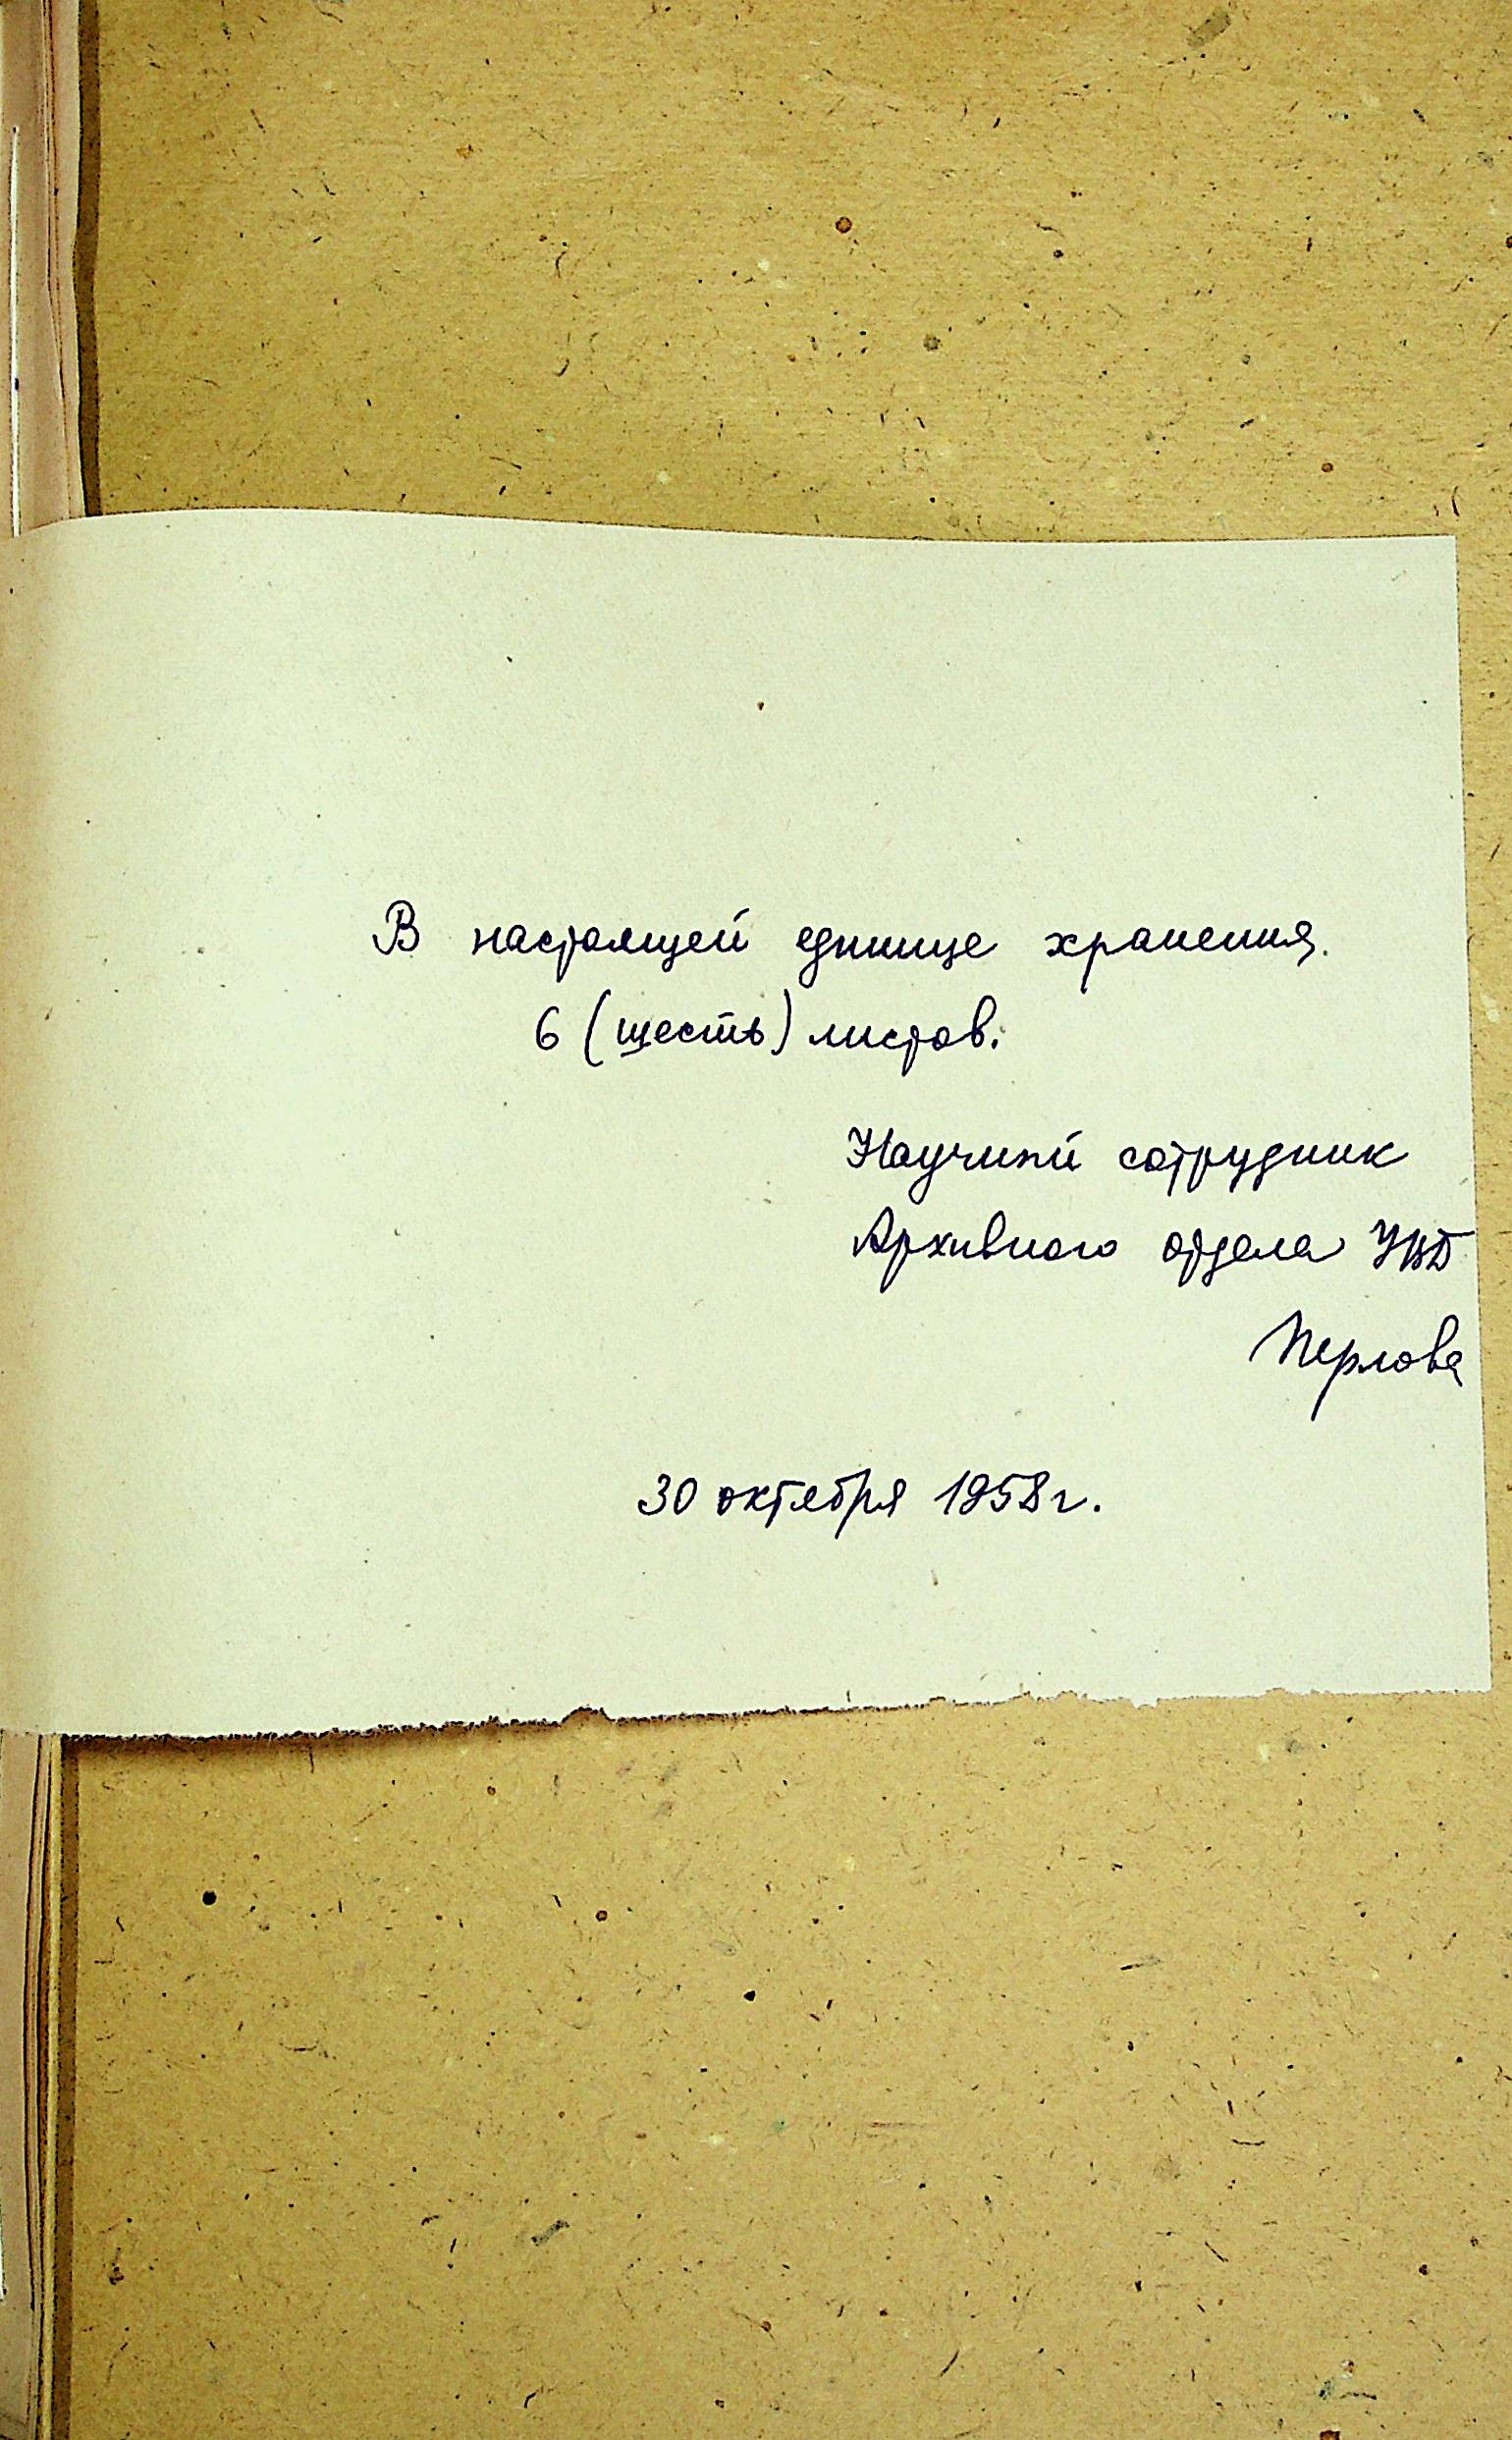 В настоящей единице хранения.
6 (шесть) листов.
Научный сотрудник
Архивного отдела УВД
Перлова
30 октября 1958 г.